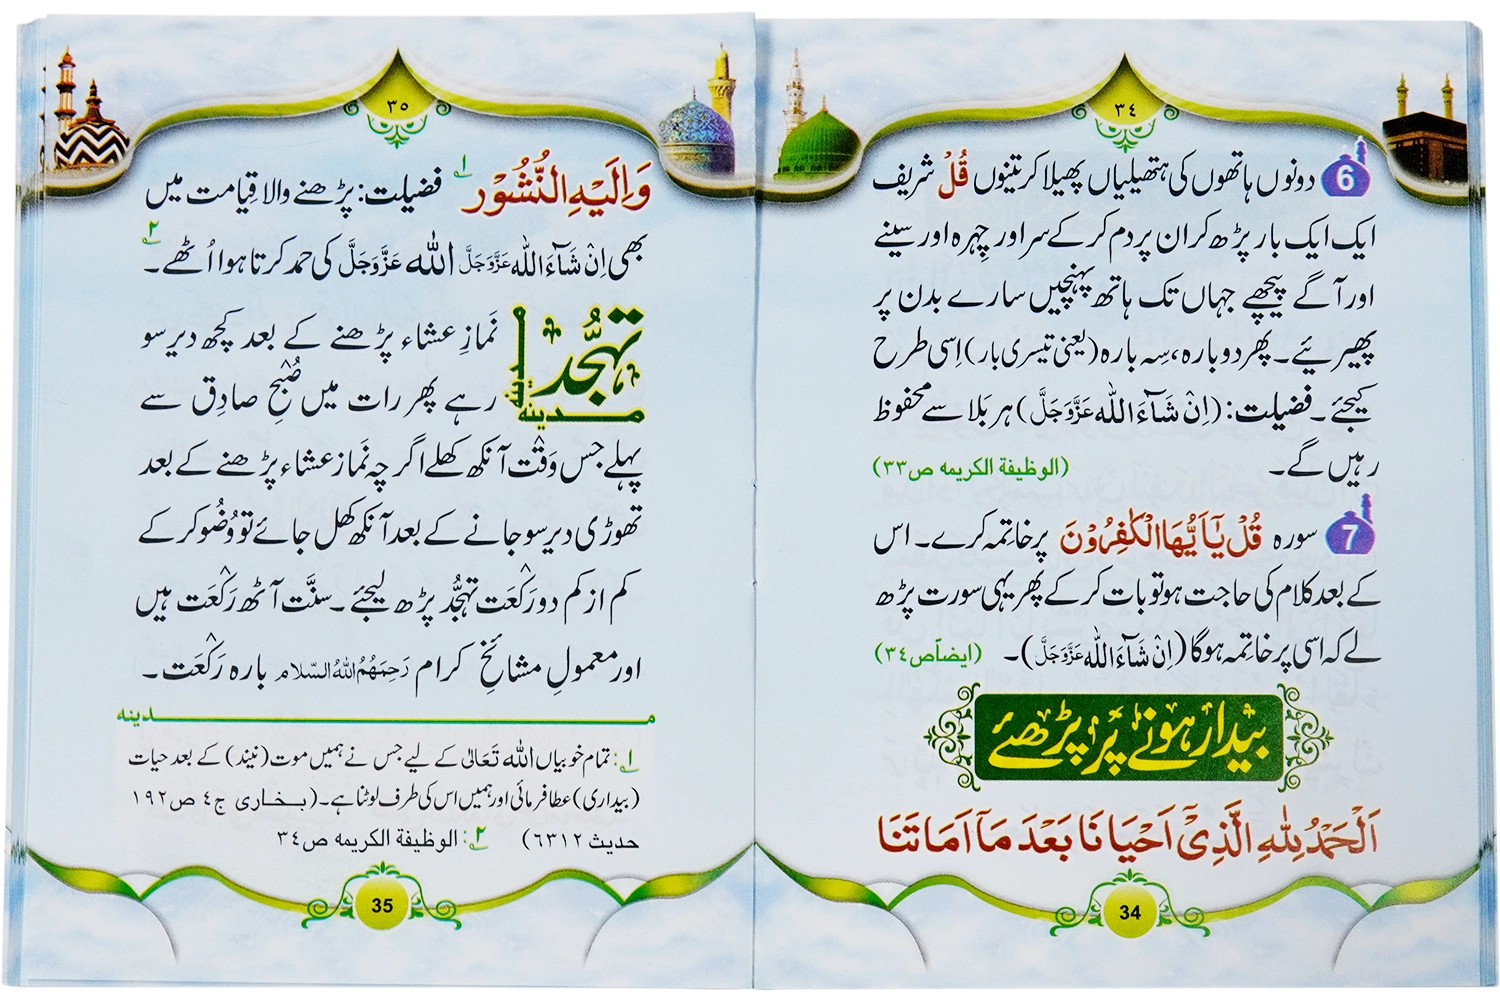 ۳٤
6 دونوں ہاتھوں کی ہتھیلیاں پھیلا کر تینوں قُلْ شریف
ایک ایک بار پڑھ کر ان پر دم کر کے سر اور چِہرہ اور سینے
اور آگے پیچھے جہاں تک ہاتھ پہنچیں سارے بدن پر
پھیریئے۔ پھر دوبارہ، سِہ بارہ (یعنی تیسری بار) اِسی طرح
کیجئے۔ فضیلت: (اِنْ شَآءَ اللّٰه عَزَّوَجَلَّ) ہر بَلا سے محفوظ
رہیں گے۔ (الوظيفة الكريمه ص۳۳)
7 سورہ قُلْ يٰۤاَيُّهَا الْكٰفِرُوْنَ پر خاتِمہ کرے۔ اس
کے بعد کلام کی حاجت ہو تو بات کر کے پھر یہی سورت پڑھ
لے کہ اسی پر خاتِمہ ہوگا (اِنْ شَآءَ اللّٰه عَزَّوَجَلَّ)۔ (ایضاً ص۳٤)
بیدار ہونے پر پڑھئے
اَلْحَمْدُ لِلّٰهِ الَّذِيْۤ اَحْيَانَا بَعْدَ مَاۤ اَمَاتَنَا
34
۳۵
وَاِلَيْهِ النُّشُوْر ۱ فضیلت: پڑھنے والا قِیامت میں
بھی اِنْ شَآءَ اللّٰه عَزَّوَجَلَّ اللّٰه عَزَّوَجَلَّ کی حمد کرتا ہوا اُٹھے۔ ۲
تہجُّد مدینہ مدینہ نَمازِ عشاء پڑھنے کے بعد کچھ دیر سو
رہے پھر رات میں صُبْحِ صادِق سے
پہلے جس وَقْت آنکھ کھلے اگرچہ نَماز عشاء پڑھنے کے بعد
تھوڑی دیر سو جانے کے بعد آنکھ کھل جائے تو وُضُو کر کے
کم از کم دو رَکْعَت تہجُّد پڑھ لیجئے۔ سنَّت آٹھ رَکْعَت ہیں
اور معمولِ مشائخِ کرام رَحِمَهُمُ اللهُ السّلام بارہ رَکْعَت۔
مدینہ
۱: تمام خوبیاں اللّٰه تَعَالٰی کے لیے جس نے ہمیں موت (نیند) کے بعد حیات
(بیداری) عطا فرمائی اور ہمیں اس کی طرف لوٹنا ہے۔ (بخاری ج٤ ص۱۹۲
حدیث ٦۳۱۲) ۲: الوظيفة الكريمه ص۳٤
35